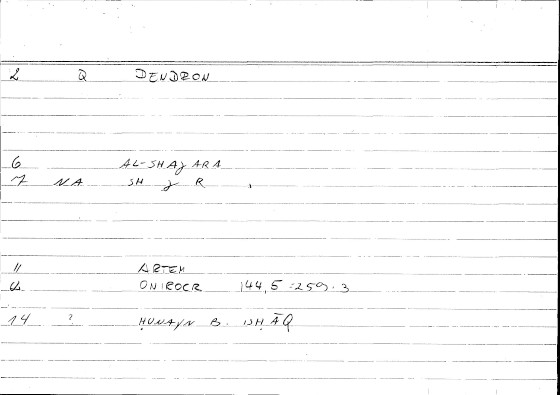 2 Q DENDRON
6 AL-SHAJARA
7 NA SH J R
11 ARTEM
ONIROCR 144,5 :259.3
14 ? ḤUNAYN B. ISḤĀQ